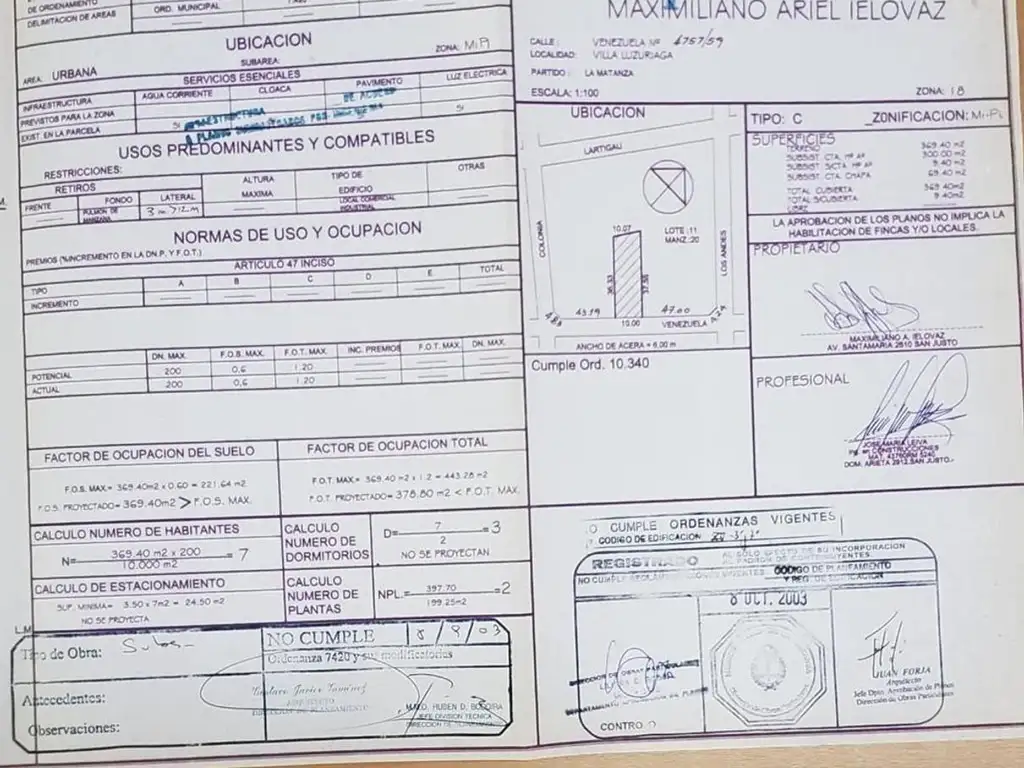 DE ORDENAMIENTO
DELIMITACION DE AREAS
ORD. MUNICIPAL
UBICACION
SUBAREA:
ZONA: Mi.Pi
AREA: URBANA
SERVICIOS ESENCIALES
INFRAESTRUCTURA
AGUA CORRIENTE
CLOACA
PAVIMENTO
LUZ ELECTRICA
PREVISTOS PARA LA ZONA
EXIST. EN LA PARCELA
SI
SI
INFRAESTRUCTURA
DE ACUERDO
USOS PREDOMINANTES Y COMPATIBLES
RESTRICCIONES:
RETIROS
ALTURA
MAXIMA
TIPO DE
EDIFICIO
OTRAS
FRENTE
FONDO
LATERAL
PULMON DE
MANZANA
LOCAL COMERCIAL
INDUSTRIAL
NORMAS DE USO Y OCUPACION
PREMIOS (%INCREMENTO EN LA DN.P. Y F.O.T.)
ARTICULO 47 INCISO
TIPO
A
B
C
D
E
TOTAL
INCREMENTO
DN. MAX.
F.O.S. MAX.
F.O.T. MAX.
INC. PREMIOS
F.O.T. MAX.
DN. MAX.
POTENCIAL
200
0,6
1.20
ACTUAL
200
0,6
1.20
FACTOR DE OCUPACION DEL SUELO
F.O.S. MAX.= 369.40m2 x 0.60 = 221.64 m2
F.O.S. PROYECTADO= 369.40m2 > F.O.S. MAX.
FACTOR DE OCUPACION TOTAL
F.O.T. MAX= 369.40 m2 x 1.2 = 443.28 m2
F.O.T. PROYECTADO= 378.80 m2 < F.O.T. MAX.
CALCULO NUMERO DE HABITANTES
N= 369.40 m2 x 200 = 7
10.000 m2
CALCULO
NUMERO DE
DORMITORIOS
D= 7 =3
2
NO SE PROYECTAN
CALCULO DE ESTACIONAMIENTO
SUP. MINIMA= 3.50 x 7m2 = 24.50 m2
NO SE PROYECTA
CALCULO
NUMERO DE
PLANTAS
NPL.= 397.70 =2
199.25m2
L.M.
Tipo de Obra: Subs-
NO CUMPLE 8/9/03
Ordenanza 7420 y sus modificatorias
Antecedentes:
Observaciones:
ARQUITECTO
DIRECCION DE PLANEAMIENTO
JEFE DIVISION TECNICA
DIRECCION DE PLANEAMIENTO
MAXIMILIANO ARIEL IELOVAZ
CALLE: VENEZUELA Nº 4757/59
LOCALIDAD: VILLA LUZURIAGA
PARTIDO: LA MATANZA
ESCALA: 1:100
ZONA: 18
UBICACION
LARTIGAU
COLONIA
LOS ANDES
LOTE:11
MANZ.:20
10.07
43.19
10.00
47.00
VENEZUELA
ANCHO DE ACERA = 6,00 m
Cumple Ord. 10.340
TIPO: C
ZONIFICACION: Mi-Pi
SUPERFICIES
TERRENO 369.40 m2
SUBSIST. CTA. Hº Aº 300.00 m2
SUBSIST. S/CTA. Hº Aº 9.40 m2
SUBSIST. CTA. CHAPA 69.40 m2
TOTAL CUBIERTA 369.40m2
TOTAL S/CUBIERTA 9.40m2
LIBRE
LA APROBACION DE LOS PLANOS NO IMPLICA LA
HABILITACION DE FINCAS Y/O LOCALES.
PROPIETARIO
MAXIMILIANO A. IELOVAZ
AV. SANTAMARIA 2610 SAN JUSTO
PROFESIONAL
JOSE MARIA LEIVA
DOM. ARIETA 2912.SAN JUSTO.-
O CUMPLE ORDENANZAS VIGENTES
CODIGO DE EDIFICACION
REGISTRADO
AL SOLO EFECTO DE SU INCORPORACION
AL PADRON DE CONTRIBUYENTES.
NO CUMPLE REGLAMENTACIONES VIGENTES
CODIGO DE PLANEAMIENTO
Y REG. DE EDIFICACION
8 OCT. 2003
CONTRO
JUAN FORJA
Arquitecto
Jefe Dpto. Aprobación de Planos
Dirección de Obras Particulares